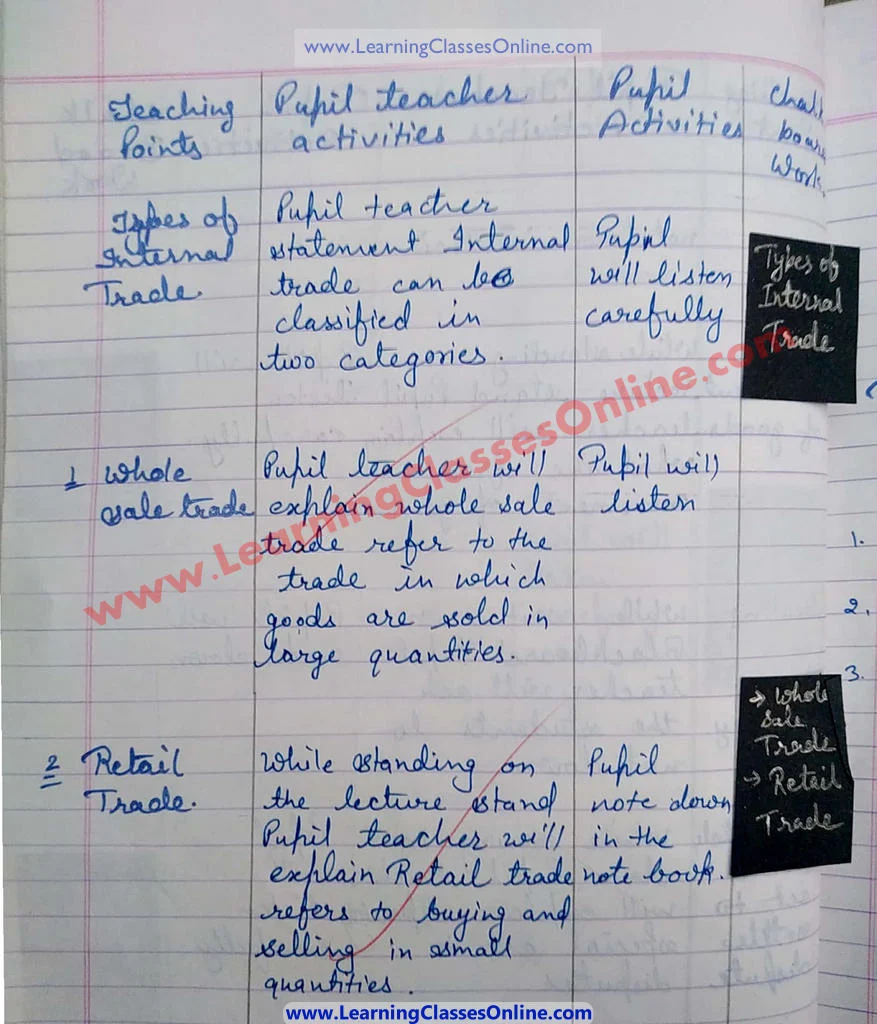 www.LearningClassesOnline.com
Teaching
Points
Pupil teacher
activities
Pupil
Activities
Chalk
board
Work.
Types of
Internal
Trade.
Pupil teacher
statement Internal
trade can be
classified in
two categories.
Pupil
will listen
carefully
Types of
Internal
Trade
www.LearningClassesOnline.com
1 Whole
sale trade
Pupil teacher will
explain whole sale
trade refer to the
trade in which
goods are sold in
large quantities.
Pupil will
listen
1.
2.
3.
→ Whole
sale
Trade
→ Retail
Trade
2 Retail
Trade.
While standing on
the lecture stand
Pupil teacher will
explain Retail trade
refers to buying and
selling in small
quantities.
Pupil
note down
in the
note book.
www.LearningClassesOnline.com